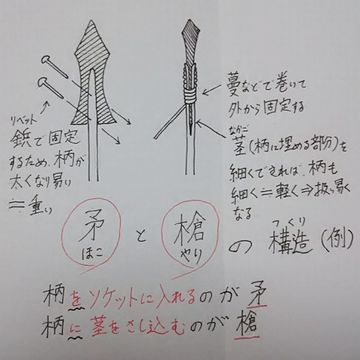 リベット
鋲で固定
するため、柄が
太くなり易い
≒重い
蔓などで巻いて
外から固定する
なかご
茎(柄に埋める部分)を
細くできれば、柄も
細く≒軽く⇒扱い易く
なる
矛
ほこ
と
槍
やり
の
つくり
構造(例)
柄をソケットに入れるのが矛
柄に茎をさし込むのが槍